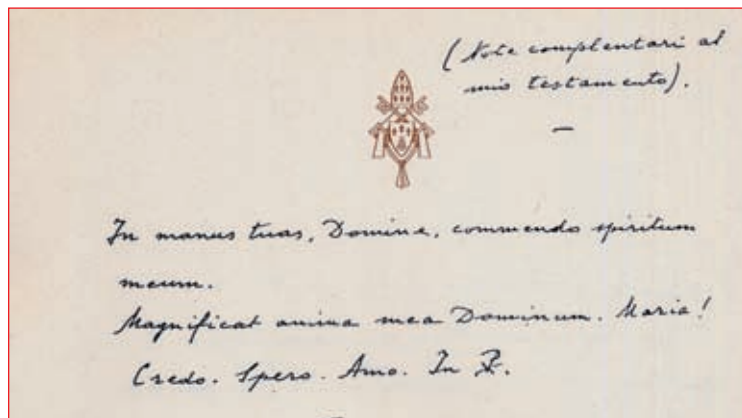 (Note complentari al
mio testamento).
—
In manus tuas, Domine, commendo spiritum
meum.
Magnificat anima mea Dominum. Maria!
Credo. Spero. Amo. In ☧.